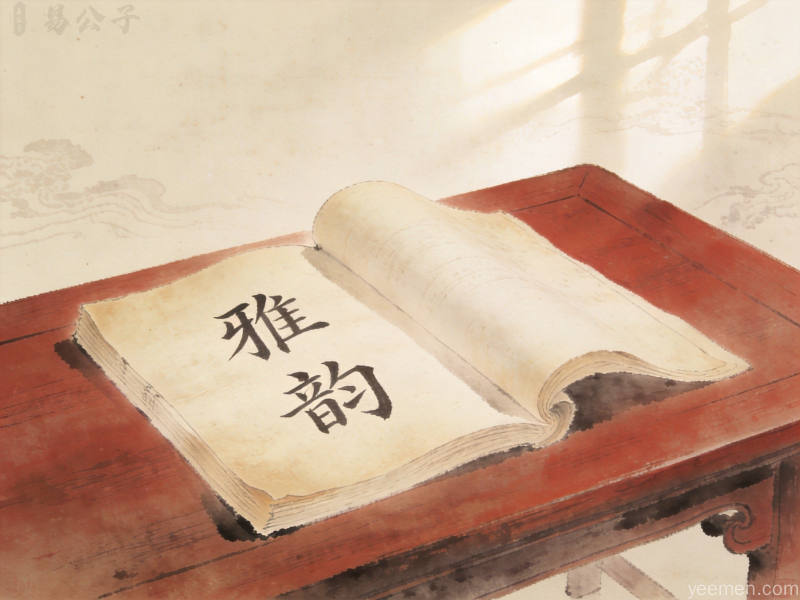 易公子
雅
韵
yeemen.com